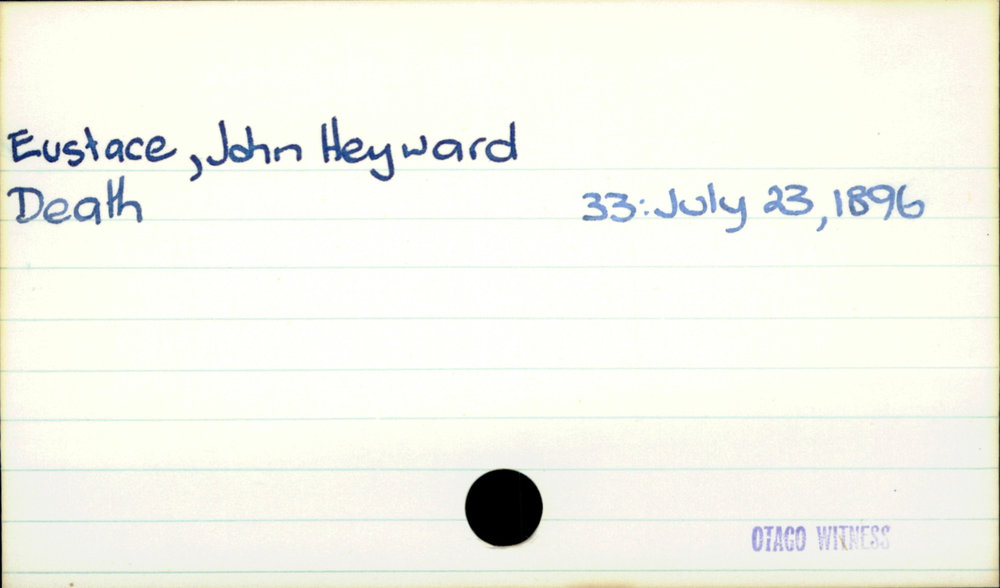 Eustace, John Heyward
Death 33: July 23, 1896
OTAGO WITNESS